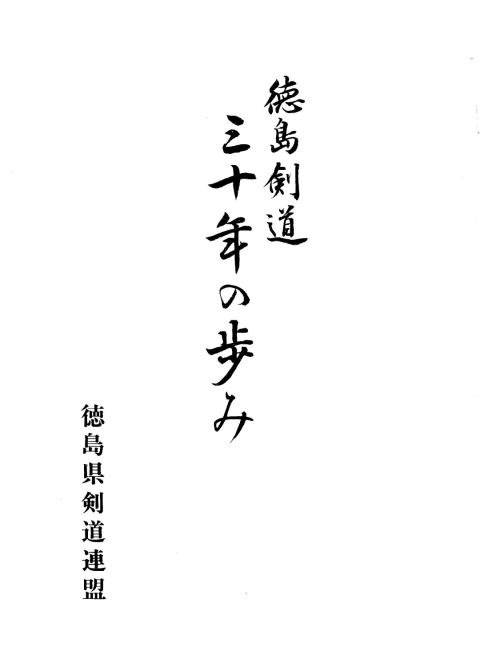 徳島剣道
三十年の歩み
徳島県剣道連盟